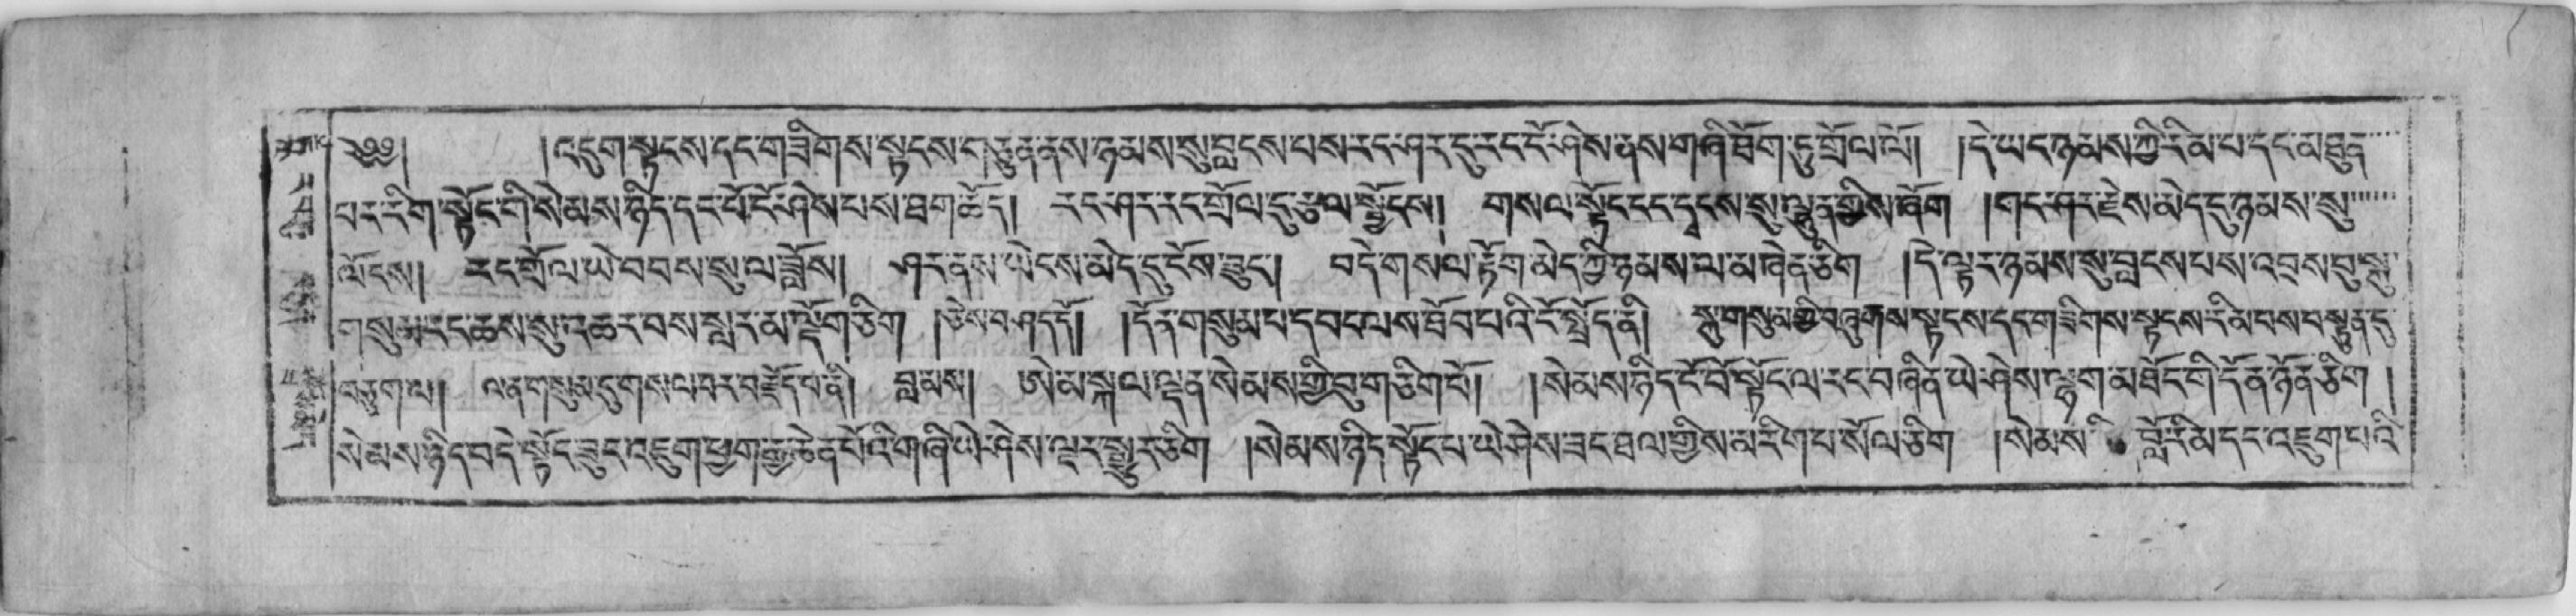 ༄༅། །འདུག་སྟངས་དང་གཟིགས་སྟངས་ང་རྒྱུན་ནས་ཉམས་སུ་བླངས་པས་རང་ཤར་དུ་རང་ངོ་ཤེས་ནས་གཞི་ཐོག་ཏུ་གྲོལ་ལོ། །དེ་ཡང་ཉམས་ཀྱི་རིམ་པ་དང་མཐུན
བར་རིག་སྟོང་གི་སེམས་ཉིད་དང་པོ་ངོ་ཤེས་པས་ཐག་ཆོད། རང་ཤར་རང་གྲོལ་དུ་རྩལ་སྦྱོངས། གསལ་སྟོང་དང་དྭངས་སུ་ལྷུན་གྱིས་ཞོག །གང་ཤར་རྗེས་མེད་དུ་ཉམས་སུ
ལོངས། རང་གྲོལ་ཡེ་བབས་སུ་ལ་བློས། ཤར་ནས་ཡེངས་མེད་དུ་ངོས་ཟུང། བདེ་གསལ་རྟོག་མེད་ཀྱི་ཉམས་ལ་མ་ཞེན་ཅིག །དེ་ལྟར་ཉམས་སུ་བླངས་པས་འབྲས་བུ་སྐུ
གསུམ་རང་ཆས་སུ་འཆར་བས་སླར་མ་ལྡོག་ཅིག །ཅེས་བཤད་དོ། །དོན་གསུམ་པ་དབང་ལས་ཐོབ་པའི་ངོ་སྤྲོད་ནི། སྐུ་གསུམ་གྱི་བཞུགས་སྟངས་དང་གཟིགས་སྟངས་རིམ་པས་བསྟུན་དུ
བཅུག་ལ། ལན་གསུམ་དུ་གསལ་བར་བརྗོད་པ་ནི། བླམས། ཨེ་མ་སྐལ་ལྡན་སེམས་ཀྱི་བུ་གཅིག་པོ། །སེམས་ཉིད་ངོ་བོ་སྟོང་ལ་རང་བཞིན་ཡེ་ཤེས་ལྷག་མཐོང་གི་དོན་ཉོན་ཅིག །
སེམས་ཉིད་བདེ་སྟོང་ཟུང་འཇུག་ཕྱག་རྒྱ་ཆེན་པོའི་གཞི་ཡེ་ཤེས་ལྟར་སྨྱུར་ཅིག །སེམས་ཉིད་སྟོང་པ་ཡེ་ཤེས་ཟང་ཐལ་གྱིས་མ་རིག་པ་སོལ་ཅིག །སེམས་ བློ་རིམ་དང་འཇུག་པའི